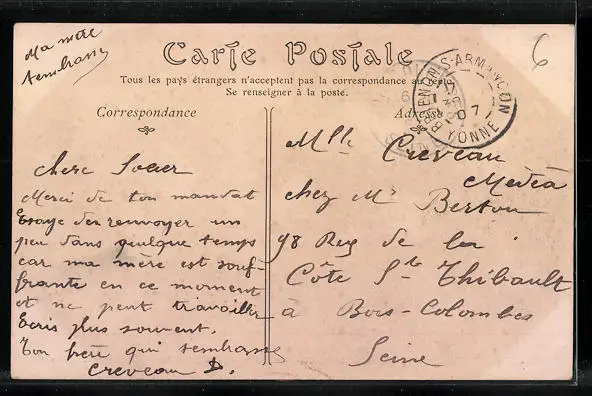 Ma mère
t'embrasse
6
Carte Postale
Tous les pays étrangers n'acceptent pas la correspondance au recto
Se renseigner à la poste.
Correspondance
Adresse
BRIENON-S-ARMANÇON
07
YONNE
chere Soeur
Merci de ton mandat
Essaye d'en renvoyer un
peu dans quelque temps
car ma mère est souf-
frante en ce moment
et ne peut travailler
Ecris plus souvent.
Ton frère qui t'embrasse
Creveau D.
Mlle Creveau
Médéa
chez Mr Berton
98 Rue de la
Côte St Thibault
à Bois-Colombes
Seine